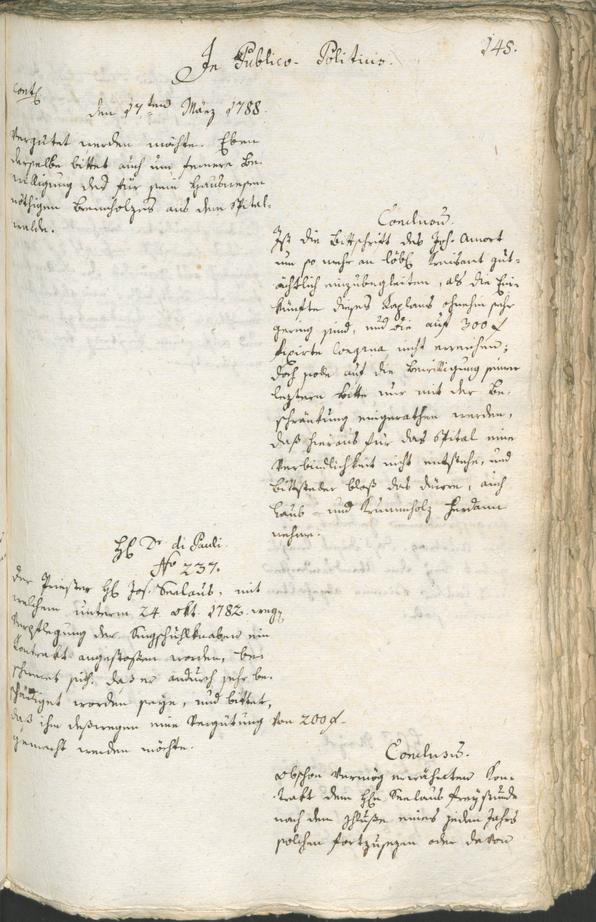 In Publico-Politicis.
145.
Cont.
den 17ten März 1788
vergütet werden möchte. Eben
derselbe bittet auch um fernere Be-
willigung des für sein Hauswesen
nöthigen Brennholzes aus dem Spital-
walde.
Conclusum.
Ist die Bittschrift des Jos. Amort
um so mehr an löbl. Kreisamt gut-
ächtlich einzubegleiten, als die Ein-
künfte dieses Kaplans ohnehin sehr
gering sind, und die auf 300 f
fixirte Congrua nicht erreichen;
doch solle auf die Bewilligung seiner
leztern Bitte nur mit der Be-
schränkung eingerathen werden,
daß hieraus für das Spital eine
Verbindlichkeit nicht entstehe, und
Bittsteller bloß das dürre, auch
Laub- und Krummholz
nehme.
H. Dr. di Pauli.
No 237.
Der Priester H. Jos. Seelaus, mit
welchem unterm 24. Okt. 1782. wegen
Verpflegung der Singschuhlknaben ein
Kontrakt angestossen worden, be-
schweret sich, daß er andurch sehr be-
schädiget worden seye, und bittet,
daß ihm deßwegen eine Vergütung von 200 f.
gemacht werden möchte.
Conclusum.
Obschon vermög erwähnten Kon-
trakt dem H. Seelaus freystunde
nach dem Schluße eines jeden Jahrs
solchen fortzusezen oder davon